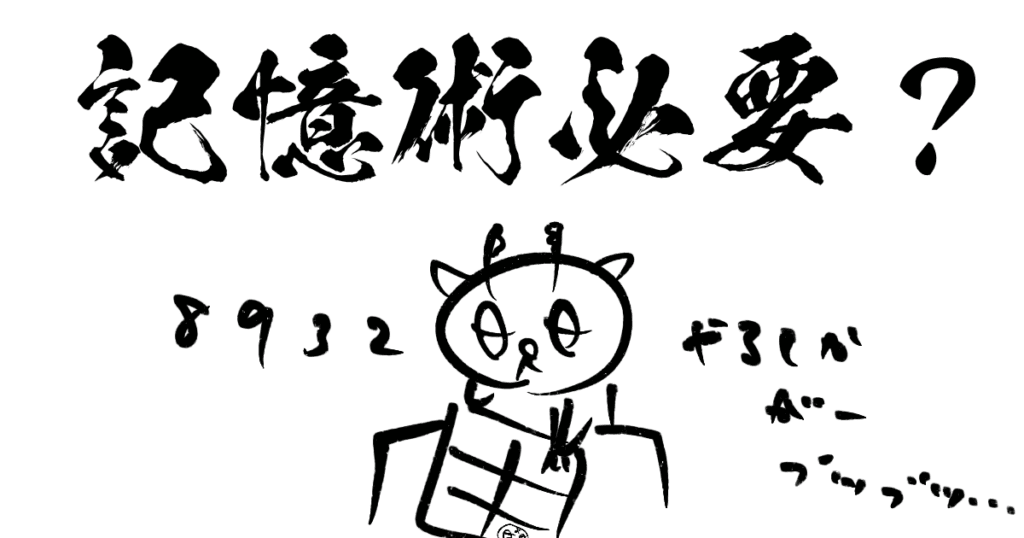 記憶術必要？
8932
やるしか
がー
ブツブツ...